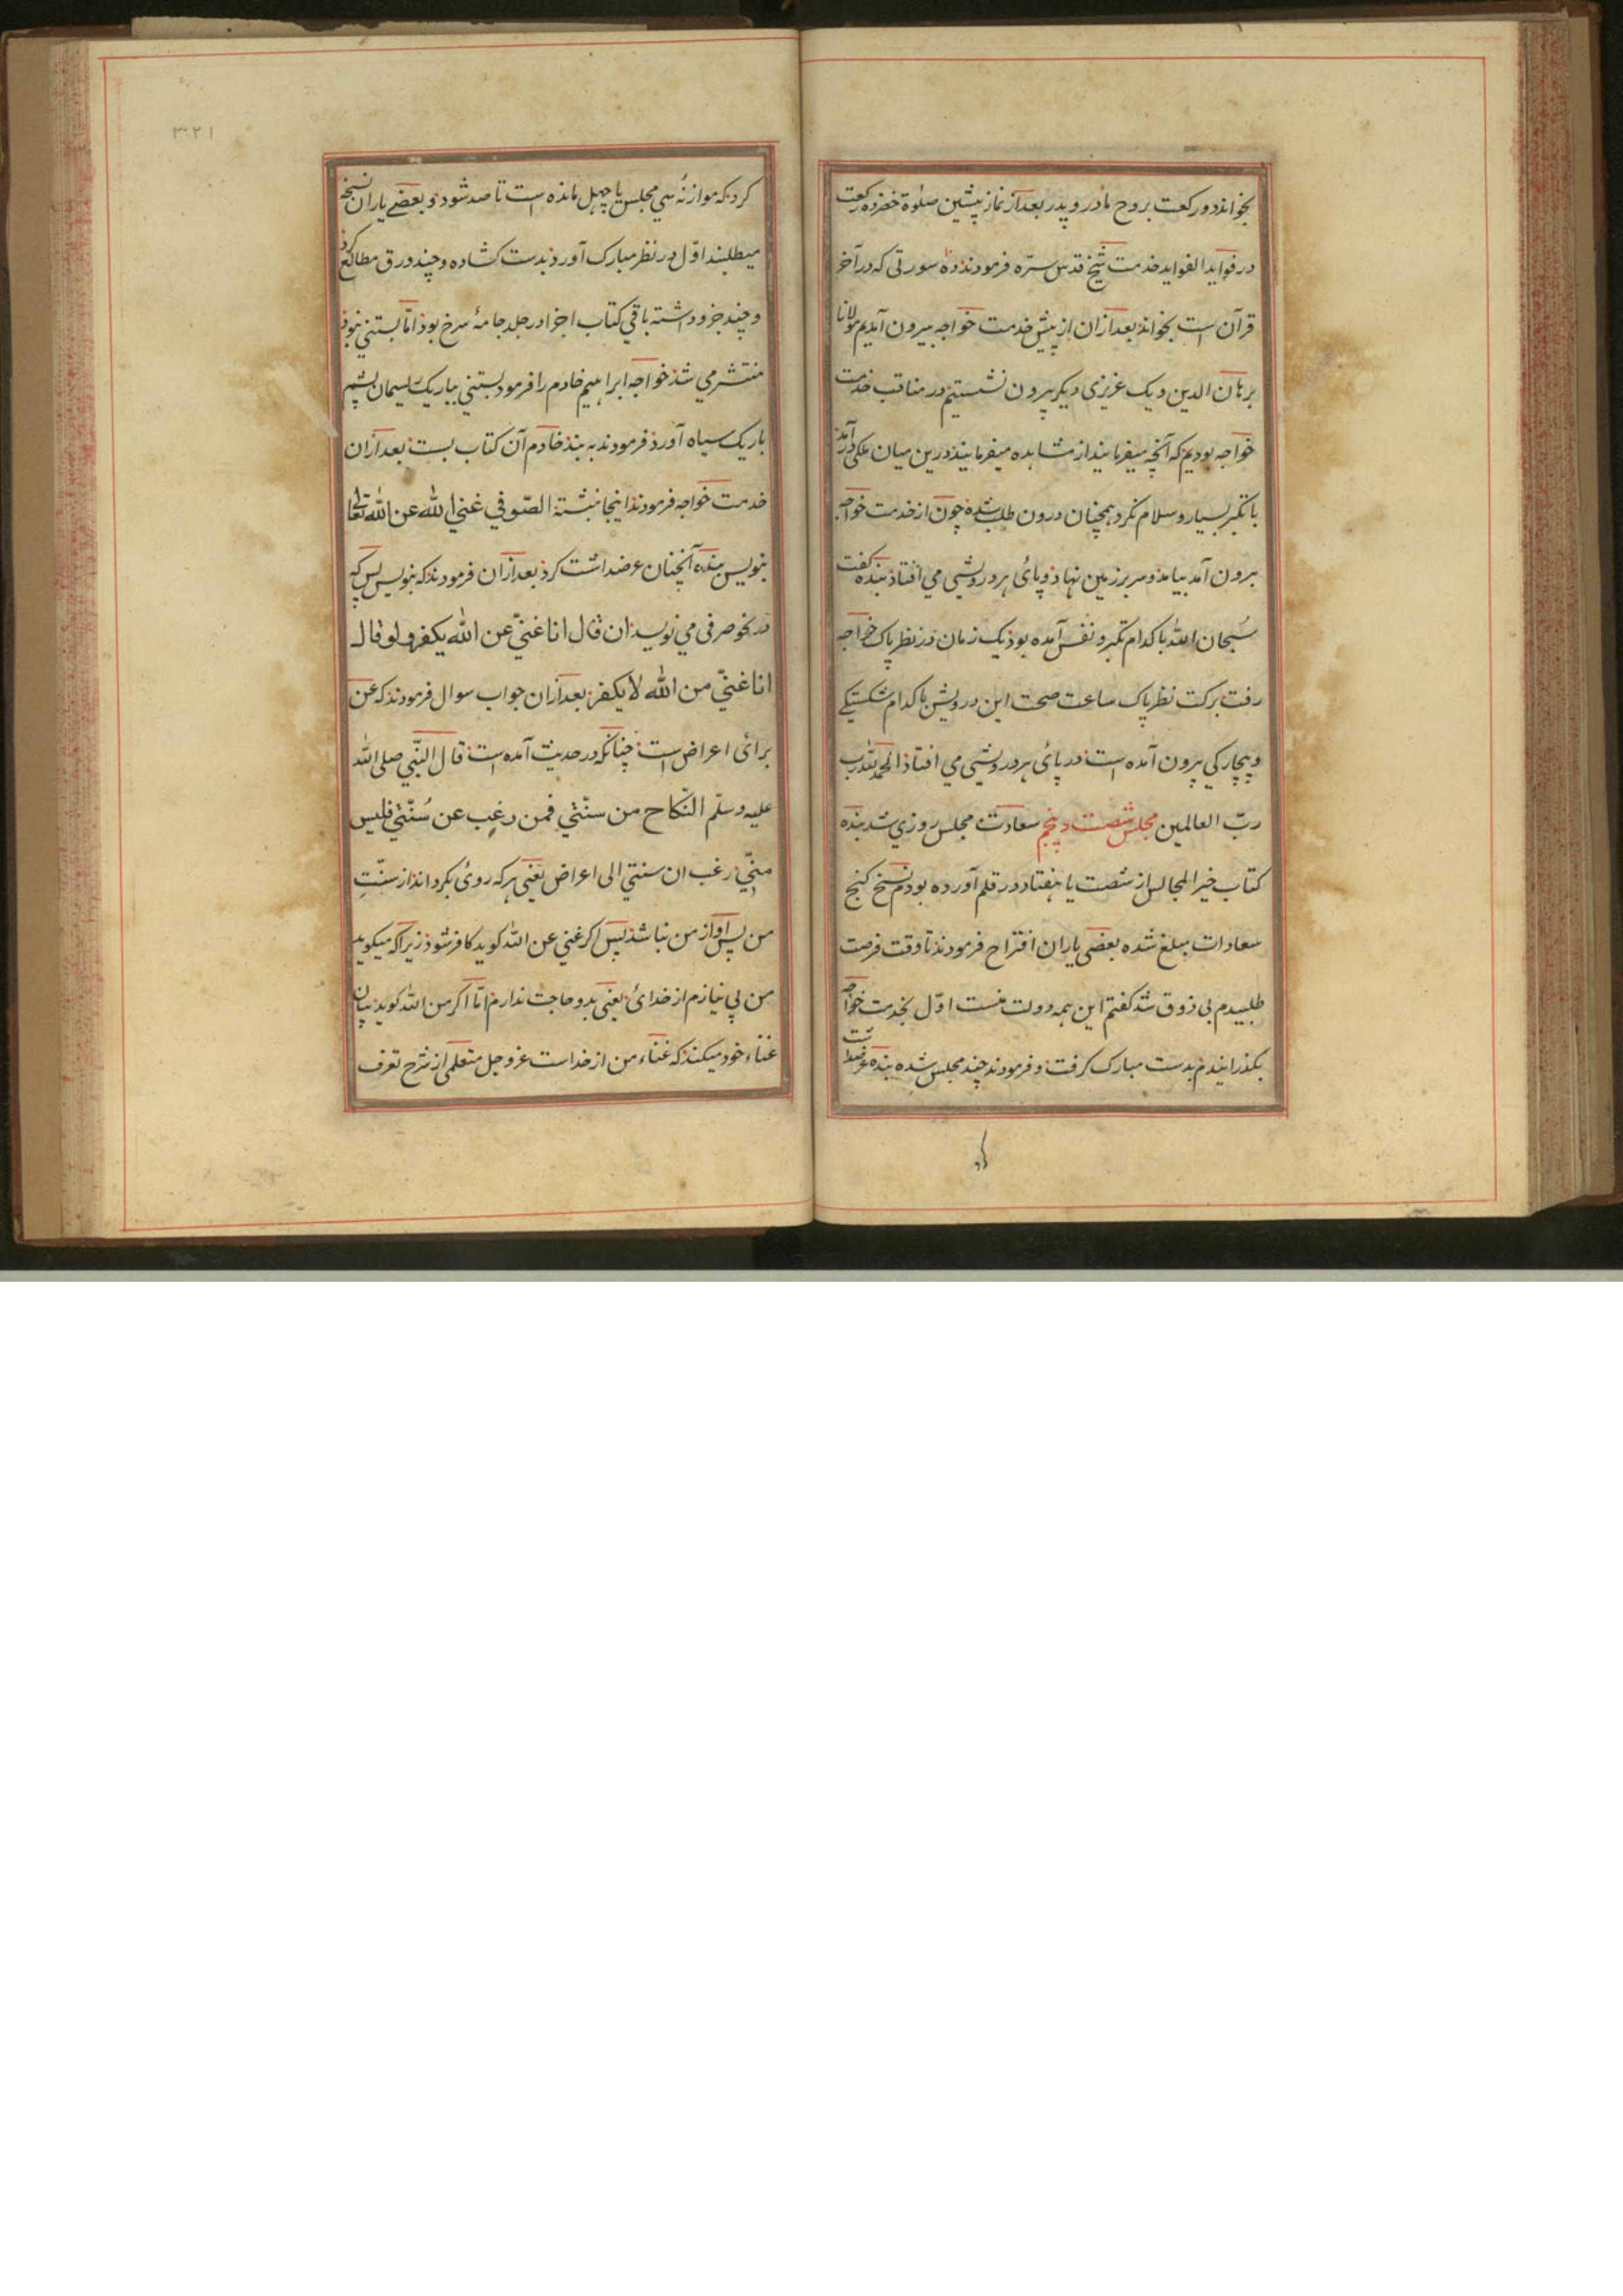 بخواند دو رکعت بروح مادر و پدر بعد از نماز پیشین صلوة خضر ده رکعت
در فواید الفواید خدمت شیخ قدس سره فرمودند ده سورتی که در آخر
قرآن است بخواند بعد ازان از پیش خدمت خواجه بیرون آمدیم مولانا
برهان الدین و یک عزیزی دیکر بیرون نشستیم در مناقب خدمت
خواجه بودیم که آنچه میفرمایند از مشاهده میفرمایند درین میان ملکی درآمد
با تکبر بسیار و سلام نکرد همچنان درون طلب شده چون از خدمت خواجه
برون آمد بیامد و سر بر زمین نهاد و پائ هر درویشی می افتاد بنده کفت
سُبحان الله با کدام تکبر و نفس آمده بود یک زمان در نظر پاک خواجه
رفت برکت نظر پاک ساعت صحت این درویش با کدام شکستیکے
و بیچارکی بیرون آمده است در پائ هر درویشی می افتاد الحمد لله رب
ربّ العالمین مجلس شصت و پنجم سعادت مجلس روزی شد بنده
کتاب خیر المجالس از شصت یا هفتاد در قلم آورده بودم نسخ کنج
سعادات مبلغ شده بعضی یاران اقتراح فرمودند تا وقت فرصت
طلبیدم بی ذوق شد کفتم این همه دولت منست اوّل بخدمت خواجه
بکذرانیدم بدست مبارک کرفت و فرمودند چند مجلس شده بنده عرضداشت
کرد
کرد که موازنهٔ سی مجلس یا چهل مانده است تا صد شود و بعضے یاران نسخه
میطلبند اوّل در نظر مبارک آورد بدست کشاده و چند ورق مطالع کرد
و چند جزو داشته باقی کتاب اجزا در جلد جامهٔ سرخ بود امّا بستنی نبود
منتشر می شد خواجه ابراهیم خادم را فرمود بستنی بیار یک ریسمان پشم
باریک سیاه آورد فرمودند به بند خادم آن کتاب بست بعد ازان
خدمت خواجه فرمودند اینجا نبشتهٔ الصّوفی غنی الله عن الله تعالی
بنویس بنده آنچنان عرضداشت کرد بعد ازان فرمودند که بنویس پس که
در نحو صرفی می نویسد ان قال انا غنیّ عن الله یکفر و لو قال
انا غنیّ من الله لا یکفر بعد ازان جواب سوال فرمودند که عن
برائ اعراض است چنانکه در حدیث آمده است قال النّبی صلی الله
علیه وسلّم النّکاح من سنّتی فمن رغب عن سُنّتی فلیس
منّی رغب ان سنتی الی اعراض یعنی هر که روئ بکرداند از سنّتِ
من پس او از من نباشد پس اکر غنی عن الله کوید کافر شود زیرا که میکوید
من بی نیازم از خدائ یعنی بدو حاجت ندارم امّا اکر من الله کوید بیان
غناء خود میکند که غناء من از خداست عزوجل متعلمی از شرح تعرف
۳۲۱